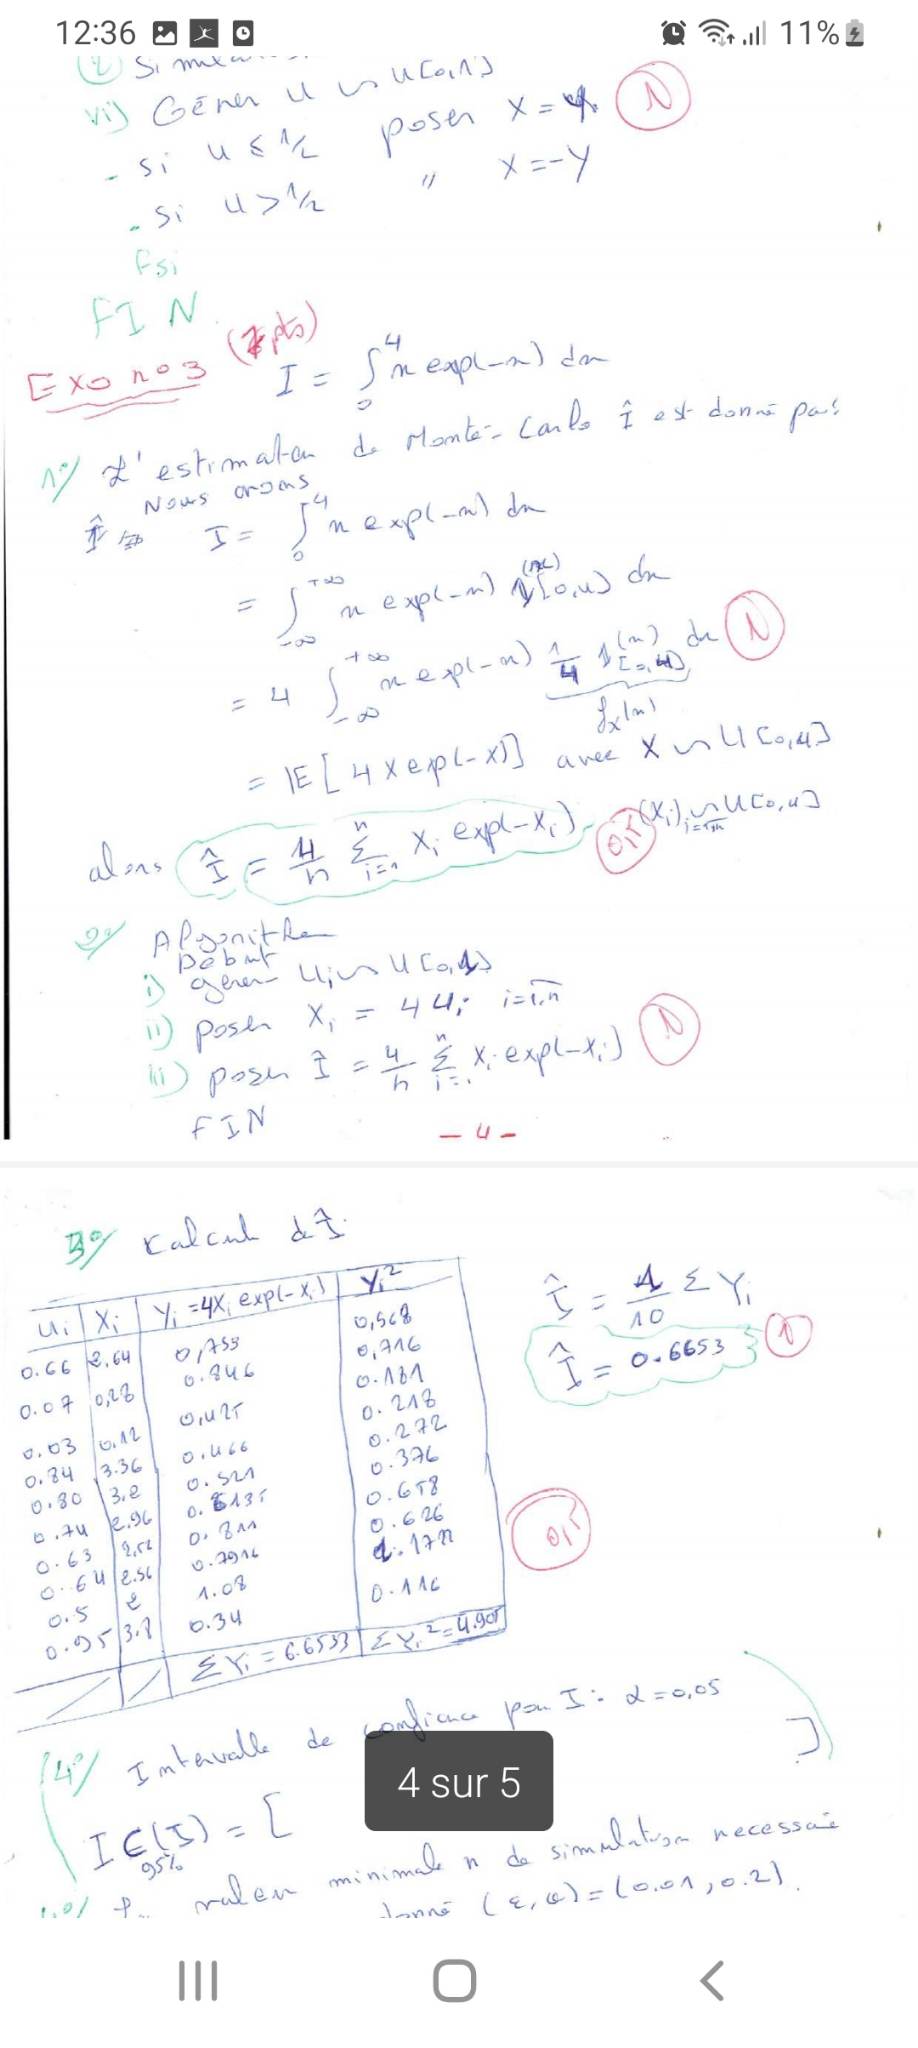 12:36 11%
vi) Génér U ∽ U[0,1]
- si U ≤ 1/2 poser X = Y. 1
- si U > 1/2 " X = -Y
Fsi
FIN
Exo n°3 (7pts)
I = ∫₀⁴ x exp(-x) dx
1°/ L'estimation de Monte-Carlo Î est donné par:
Nous avons
I = ∫₀⁴ x exp(-x) dx
= ∫_{-∞}^{+∞} x exp(-x) 1_{[0,4]}(x) dx
= 4 ∫_{-∞}^{+∞} x exp(-x) 1/4 1_{[0,4]}(x) dx 1
f_X(x)
= IE[4 X exp(-X)] avec X ∽ U[0,4]
alors Î = 4/n Σ_{i=1}^{n} X_i exp(-X_i) 0,5 (X_i)_{i=1,n} ∽ U[0,4]
2°/ Algorithe
Début
i) génér U_i ∽ U[0,1]
ii) poser X_i = 4U_i i=1,n
iii) poser Î = 4/n Σ_{i=1}^{n} X_i exp(-X_i) 1
FIN
- 4 -
3°/ Calcul de Î.
U_i | X_i | Y_i = 4X_i exp(-X_i) | Y_i²
0.66 2,64 0,753 0,568
0.07 0,28 0.846 0,716
0.03 0.12 0,425 0.181
0.84 3.36 0.466 0.218
0.80 3.2 0.521 0.272
0.74 2.96 0.6135 0.376
0.63 2,52 0.811 0.658
0.64 2.56 0.7916 0.626
0.5 2 1.08 1.172
0.95 3.8 0.34 0.116
ΣY_i = 6.6533 ΣY_i² = 4.905
Î = 1/10 Σ Y_i
Î = 0.6653 1
0,5
4°/ Intervalle de confiance pour I : α = 0,05
IC(I)95% = [ ]
4 sur 5
valeur minimale n de simulation necessaire
donné (ε, α) = (0.01, 0.2).